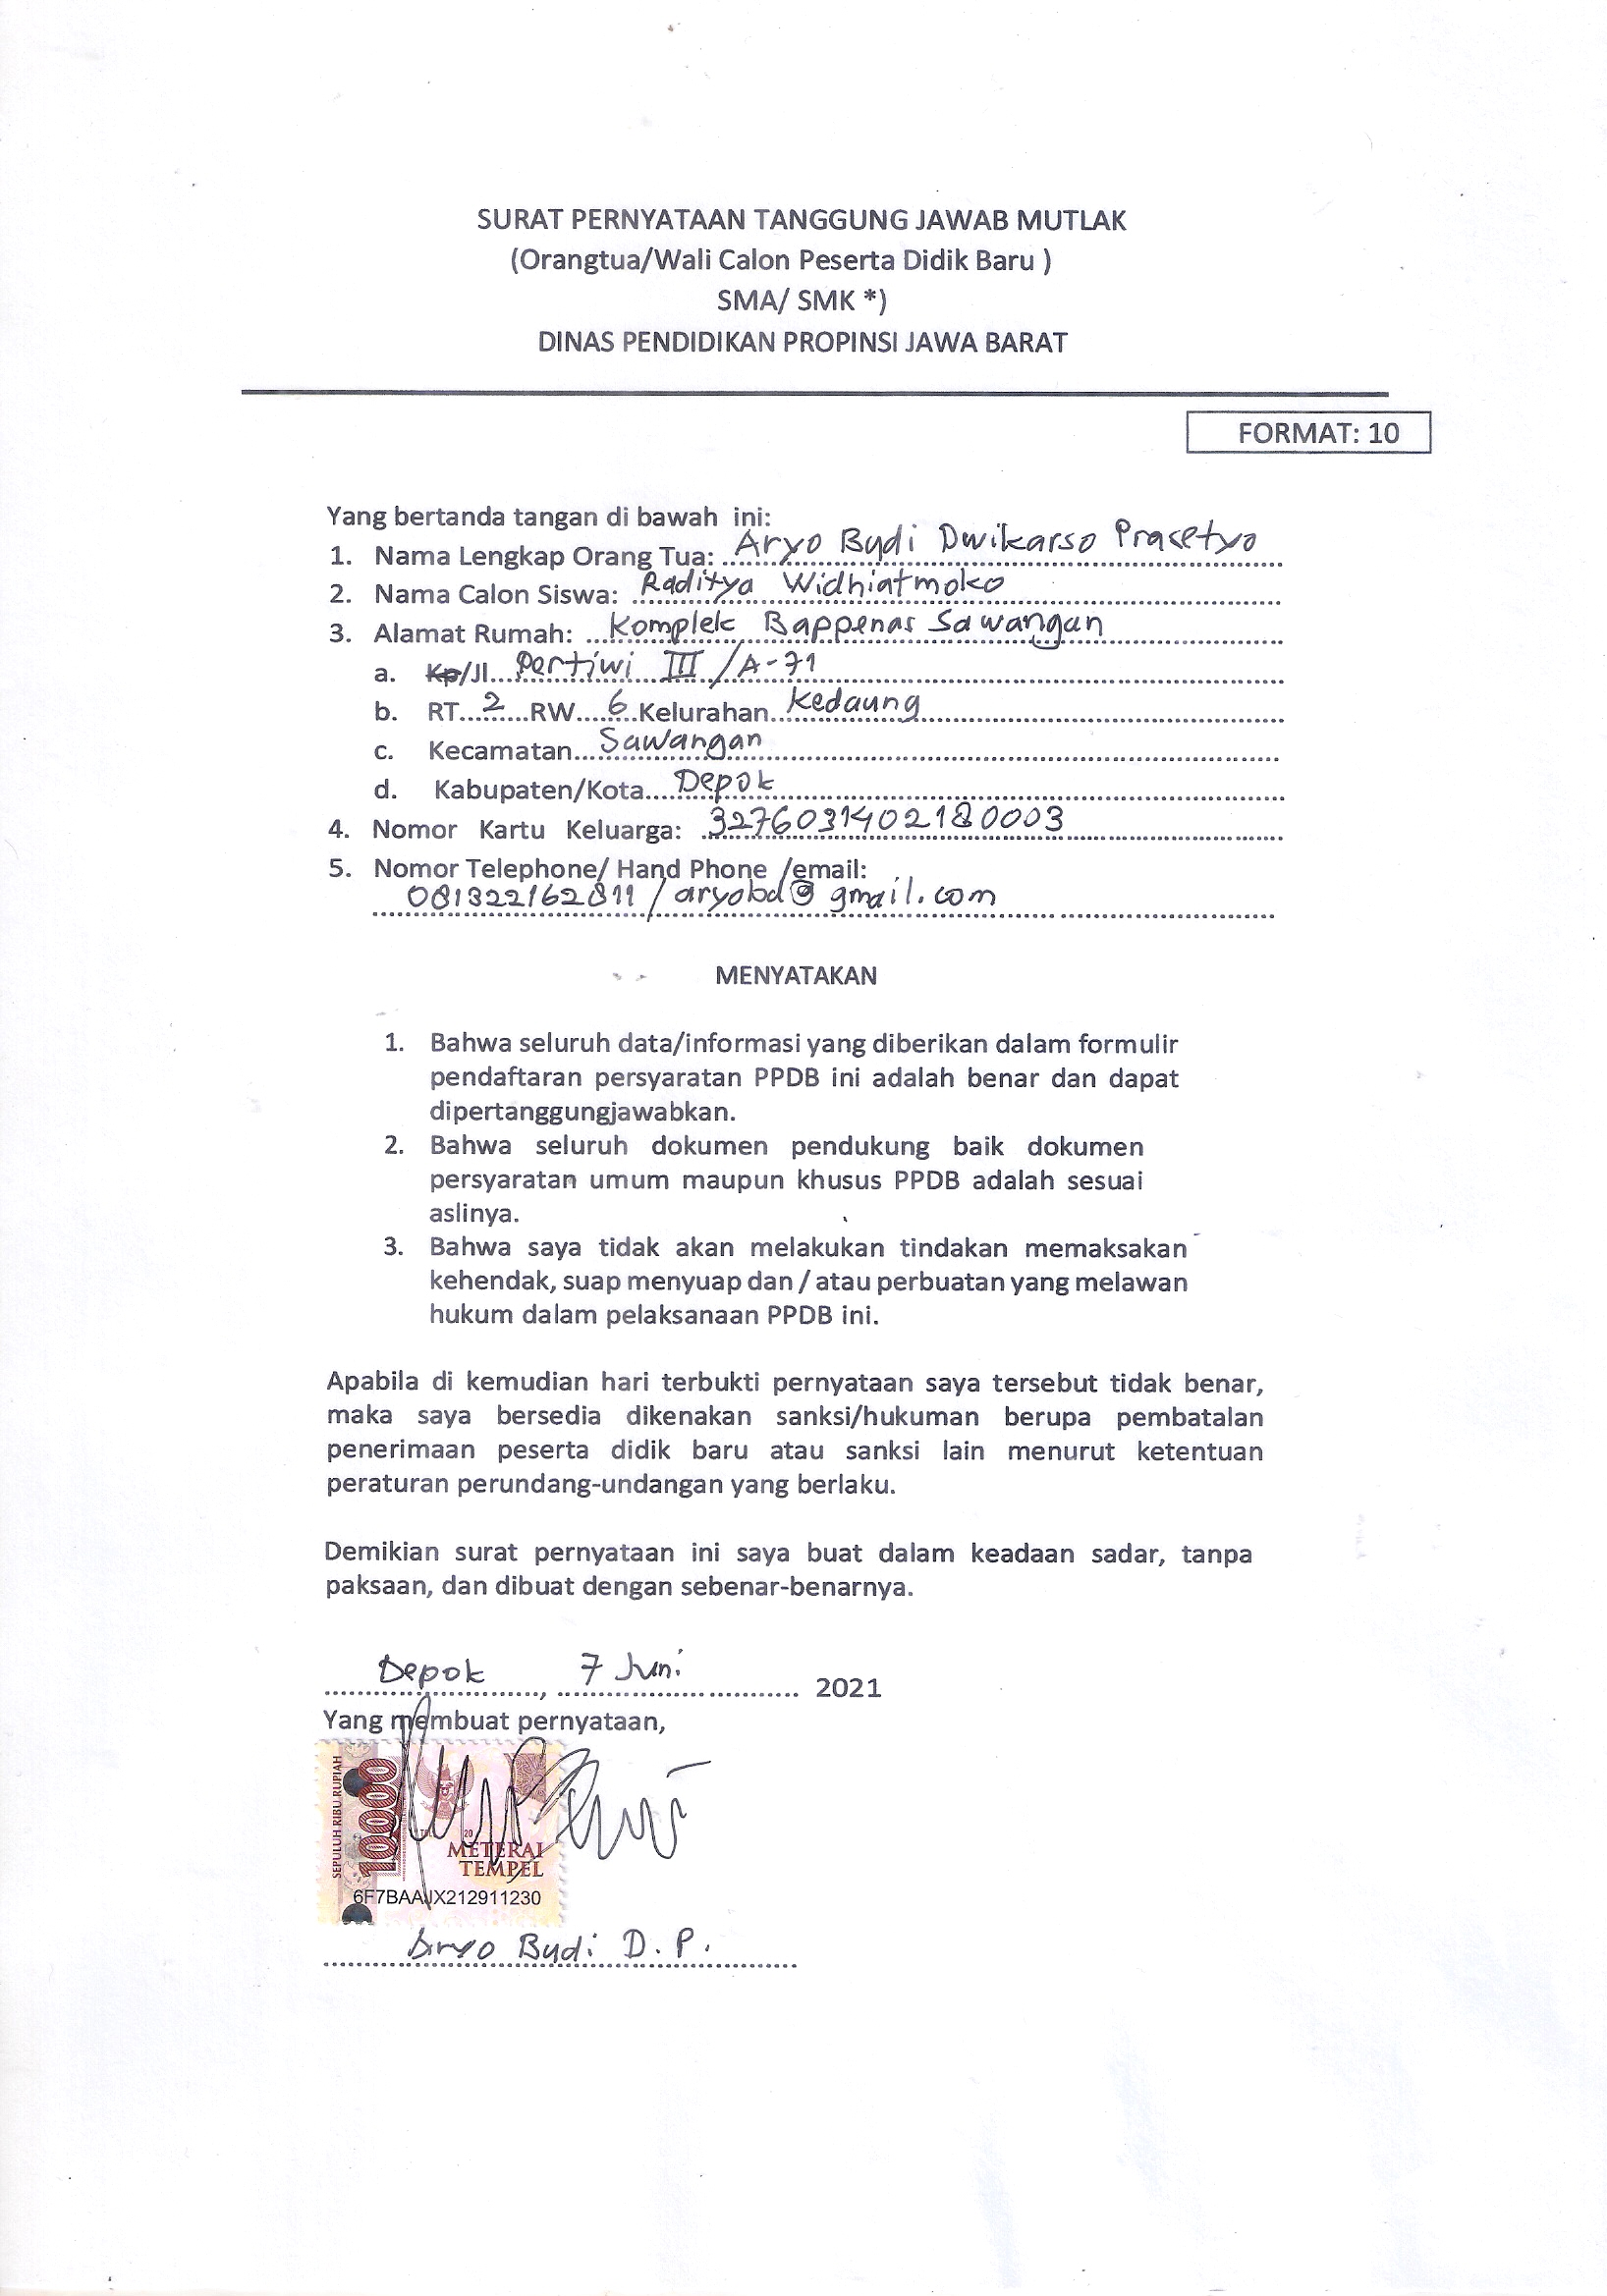 SURAT PERNYATAAN TANGGUNG JAWAB MUTLAK
(Orangtua/Wali Calon Peserta Didik Baru )
SMA/ SMK *)
DINAS PENDIDIKAN PROPINSI JAWA BARAT
FORMAT: 10
Yang bertanda tangan di bawah ini:
1. Nama Lengkap Orang Tua: Aryo Budi Dwikarso Prasetyo
2. Nama Calon Siswa: Raditya Widhiatmoko
3. Alamat Rumah: Komplek Bappenas Sawangan
a. Kp/Jl. Pertiwi III / A-71
b. RT 2 RW 6 Kelurahan Kedaung
c. Kecamatan Sawangan
d. Kabupaten/Kota Depok
4. Nomor Kartu Keluarga: 3276031402180003
5. Nomor Telephone/ Hand Phone /email:
081322162811 / aryobd@gmail.com
MENYATAKAN
1. Bahwa seluruh data/informasi yang diberikan dalam formulir
pendaftaran persyaratan PPDB ini adalah benar dan dapat
dipertanggungjawabkan.
2. Bahwa seluruh dokumen pendukung baik dokumen
persyaratan umum maupun khusus PPDB adalah sesuai
aslinya.
3. Bahwa saya tidak akan melakukan tindakan memaksakan
kehendak, suap menyuap dan / atau perbuatan yang melawan
hukum dalam pelaksanaan PPDB ini.
Apabila di kemudian hari terbukti pernyataan saya tersebut tidak benar,
maka saya bersedia dikenakan sanksi/hukuman berupa pembatalan
penerimaan peserta didik baru atau sanksi lain menurut ketentuan
peraturan perundang-undangan yang berlaku.
Demikian surat pernyataan ini saya buat dalam keadaan sadar, tanpa
paksaan, dan dibuat dengan sebenar-benarnya.
Depok, 7 Juni 2021
Yang membuat pernyataan,
SEPULUH RIBU RUPIAH
10000
METERAI
TEMPEL
6F7BAAJX212911230
Aryo Budi D. P.